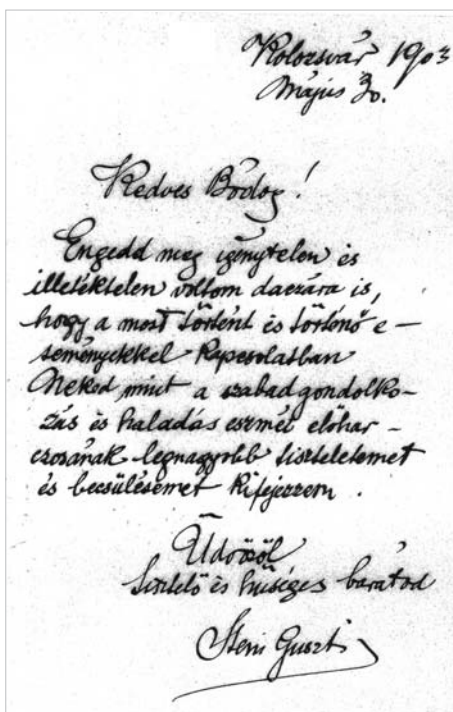 Kolozsvár 1903
Május 30.
Kedves Bódog!
Engedd meg igénytelen és
illetéktelen voltom daczára is,
hogy a most történt és történő e-
seményekkel kapcsolatban
Neked mint a szabadgondolko-
zás és haladás eszméi előhar-
czosának legnagyobb tiszteletemet
és becsülésemet kifejezzem.
Üdvözöl
tisztelő és hűséges barátod
Guszti